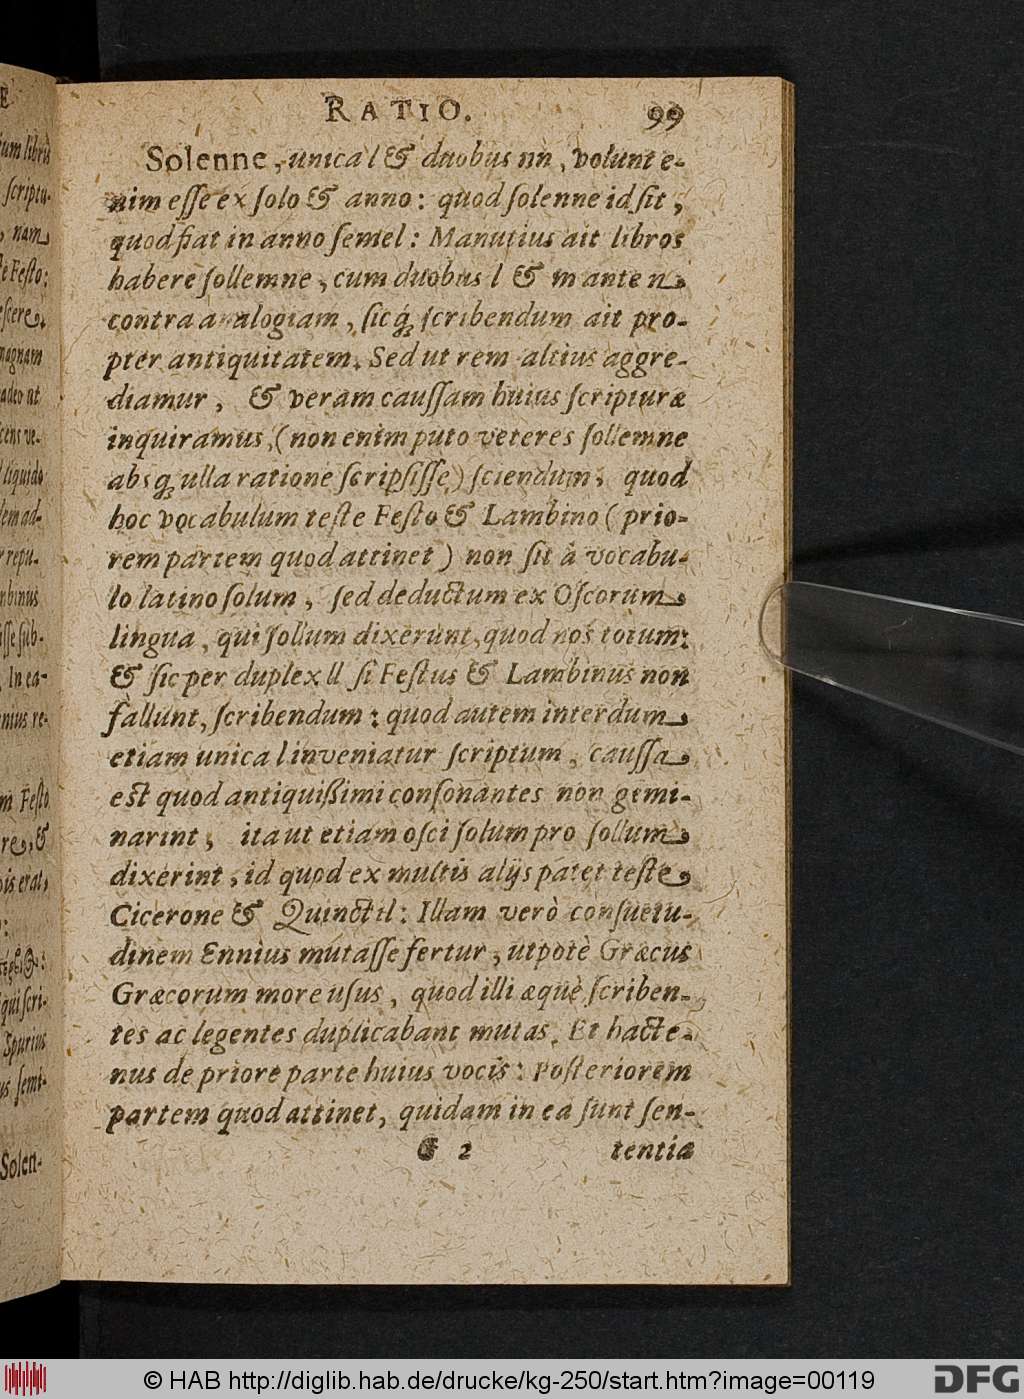 E
ium libris
scriptu-
, nam
te Festo:
escere,
magnam
adeo ut
cens ve-
liquido
lem ad-
r repu-
mbinus
isse sub-
. In ea-
mius re-
m Festo
re, &
ois erat,
qui scri-
Spurius
us semi-
Solen-
RATIO. 99
Solenne, unica l & duobus nn, volunt e-
nim esse ex solo & anno: quod solenne id sit,
quod fiat in anno semel: Manutius ait libros
habere sollemne, cum duobus l & m ante n,
contra analogiam, sicq́; scribendum ait pro-
pter antiquitatem. Sed ut rem altius aggre-
diamur, & veram caussam huius scripturæ
inquiramus, (non enim puto veteres sollemne
absq; ulla ratione scripsisse) sciendum, quod
hoc vocabulum teste Festo & Lambino (prio-
rem partem quod attinet) non sit à vocabu-
lo latino solum, sed deductum ex Oscorum
lingua, qui sollum dixerunt, quod nos totum:
& sic per duplex ll si Festus & Lambinus non
fallunt, scribendum: quod autem interdum
etiam unica l inveniatur scriptum, caussa
est quod antiquißimi consonantes non gemi-
narint, ita ut etiam osci solum pro sollum
dixerint, id quod ex multis alijs patet teste
Cicerone & Quinctil: Illam verò consuetu-
dinem Ennius mutasse fertur, utpotè Græcus
Græcorum more usus, quod illi æquè scriben-
tes ac legentes duplicabant mutas. Et hacte-
nus de priore parte huius vocis: Posteriorem
partem quod attinet, quidam in ea sunt sen-
G 2 tentia
© HAB http://diglib.hab.de/drucke/kg-250/start.htm?image=00119
DFG